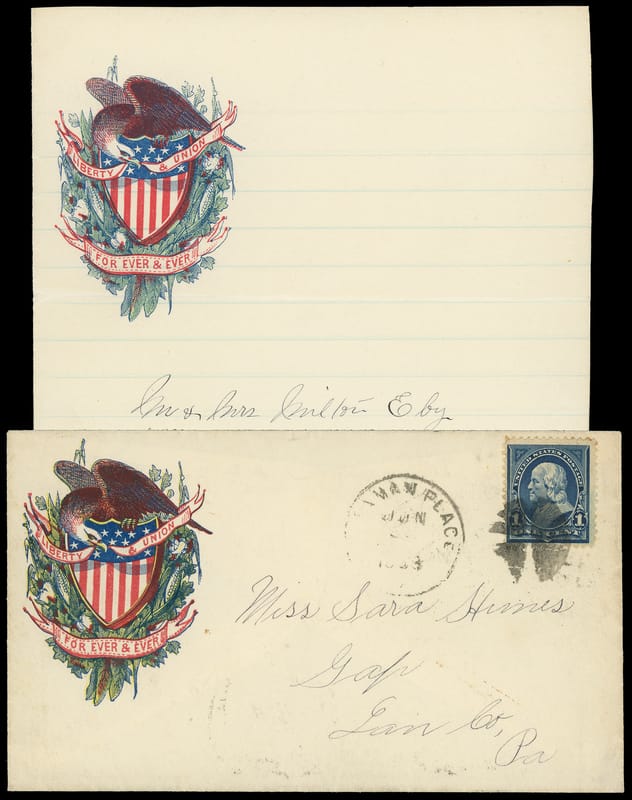 LIBERTY & UNION
FOR EVER & EVER
Mr & Mrs Milton Eby
UNITED STATES POSTAGE
1 1
ONE CENT
PLACE
JUN
LIBERTY & UNION
FOR EVER & EVER
Miss Sara Himes
Gap
Lan Co,
Pa